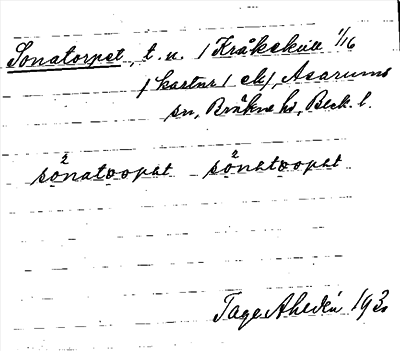 Sonatorpet, t. u. / Kråkekulle 1/16
/ kartnr / ek/, Asarums
sn, Bräkne hd, Blek. l.
2 2
sonatoopat sonatoopat
Tage Ahldén 193